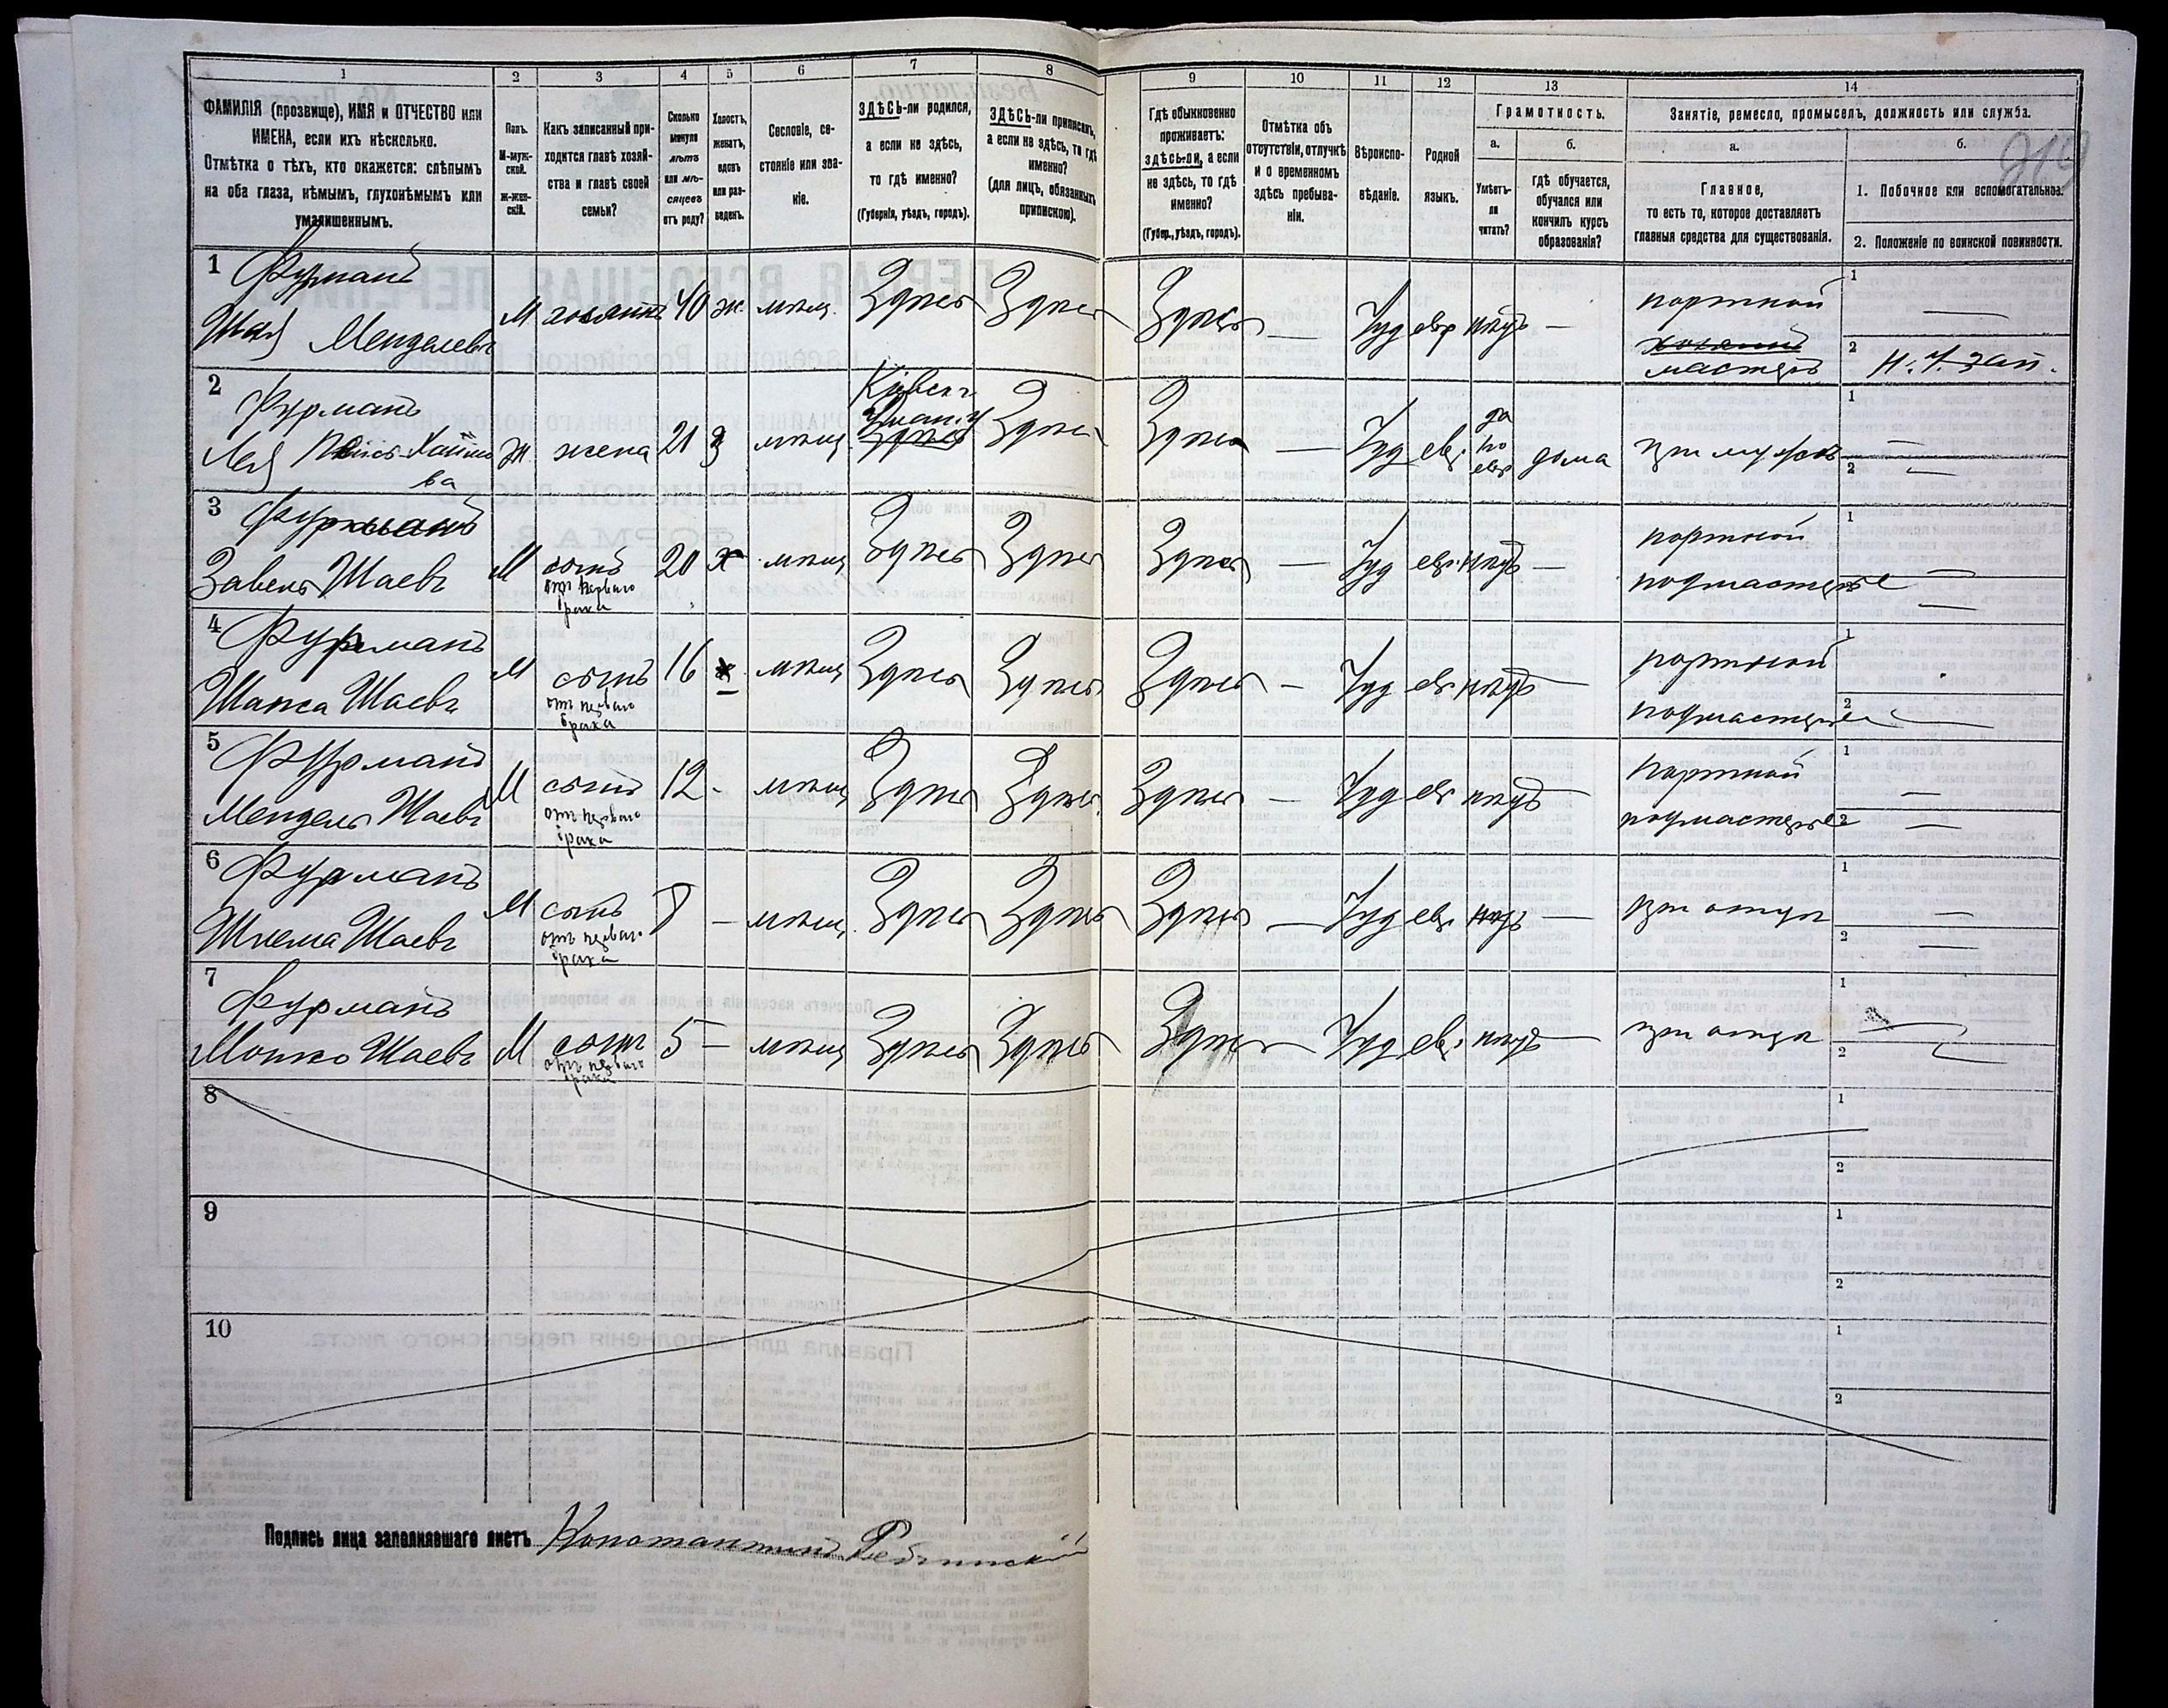 1 2 3 4 5 6 7 8 9 10 11 12 13 14
ФАМИЛІЯ (прозвище), ИМЯ и ОТЧЕСТВО или
ИМЕНА, если ихъ нѣсколько.
Отмѣтка о тѣхъ, кто окажется: слѣпымъ
на оба глаза, нѣмымъ, глухонѣмымъ или
умалишеннымъ.
Полъ.
М-муж-
ской.
Ж-жен-
скій.
Какъ записанный при-
ходится главѣ хозяй-
ства и главѣ своей
семьи?
Сколько
минуло
лѣтъ
или мѣ-
сяцевъ
отъ роду?
Холостъ,
женатъ,
вдовъ
или раз-
веденъ.
Сословіе, со-
стояніе или зва-
ніе.
ЗДѢСЬ-ли родился,
а если не здѣсь,
то гдѣ именно?
(Губернія, уѣздъ, городъ).
ЗДѢСЬ-ли приписанъ,
а если не здѣсь, то гдѣ
именно?
(для лицъ, обязанныхъ
припискою).
Гдѣ обыкновенно
проживаетъ:
здѣсь-ли, а если
не здѣсь, то гдѣ
именно?
(Губер., уѣздъ, городъ).
Отмѣтка объ
отсутствіи, отлучкѣ
и о временномъ
здѣсь пребыва-
ніи.
Вѣроиспо-
вѣданіе.
Родной
языкъ.
Грамотность.
а.
Умѣетъ-
ли
читать?
б.
гдѣ обучается,
обучался или
кончилъ курсъ
образованія?
Занятіе, ремесло, промыселъ, должность или служба.
а.
Главное,
то есть то, которое доставляетъ
главныя средства для существованія.
б.
1. Побочное или вспомогательное.
2. Положеніе по воинской повинности.
219
1 Фурманъ
Шая Менделевъ М хозяинъ 40 ж. мѣщ. Здѣсь Здѣсь Здѣсь — Іуд евр нѣтъ — портной
хозяинъ
мастеръ
1 —
2 Н. Ч. зап.
2 Фурманъ
Лея Хаимо
ва Ж. жена 21 З мѣщ.
Кіевск
Уман. у
Здѣсь Здѣсь Здѣсь — Іуд евр.
да
по
евр дома при мужѣ
1 —
2 —
3 Фурманъ
Завель Шаевъ М сынъ
отъ перваго
брака
20 х мѣщ Здѣсь Здѣсь Здѣсь — Іуд евр. нѣтъ — портной
подмастерье
1 —
2 —
4 Фурманъ
Шапса Шаевъ М сынъ
отъ перваго
брака
16 мѣщ Здѣсь Здѣсь Здѣсь — Іуд евр нѣтъ — портной
подмастерье
1
2 —
5 Фурманъ
Мендель Шаевъ М сынъ
отъ перваго
брака
12 - мѣщ Здѣсь Здѣсь Здѣсь — Іуд евр нѣтъ — портной
подмастерье
1 —
2 —
6 Фурманъ
Шлема Шаевъ М сынъ
отъ перваго
брака
8 — мѣщ. Здѣсь Здѣсь Здѣсь — Іуд евр. нѣтъ — при отцѣ
1 —
2 —
7 Фурманъ
Мошко Шаевъ М сынъ
отъ перваго
брака
5 — мѣщ Здѣсь Здѣсь Здѣсь — Іуд евр. нѣтъ — при отцѣ
1 —
2 —
8 1
2
9 1
2
10 1
2
Подпись лица заполнявшаго листъ Константинъ